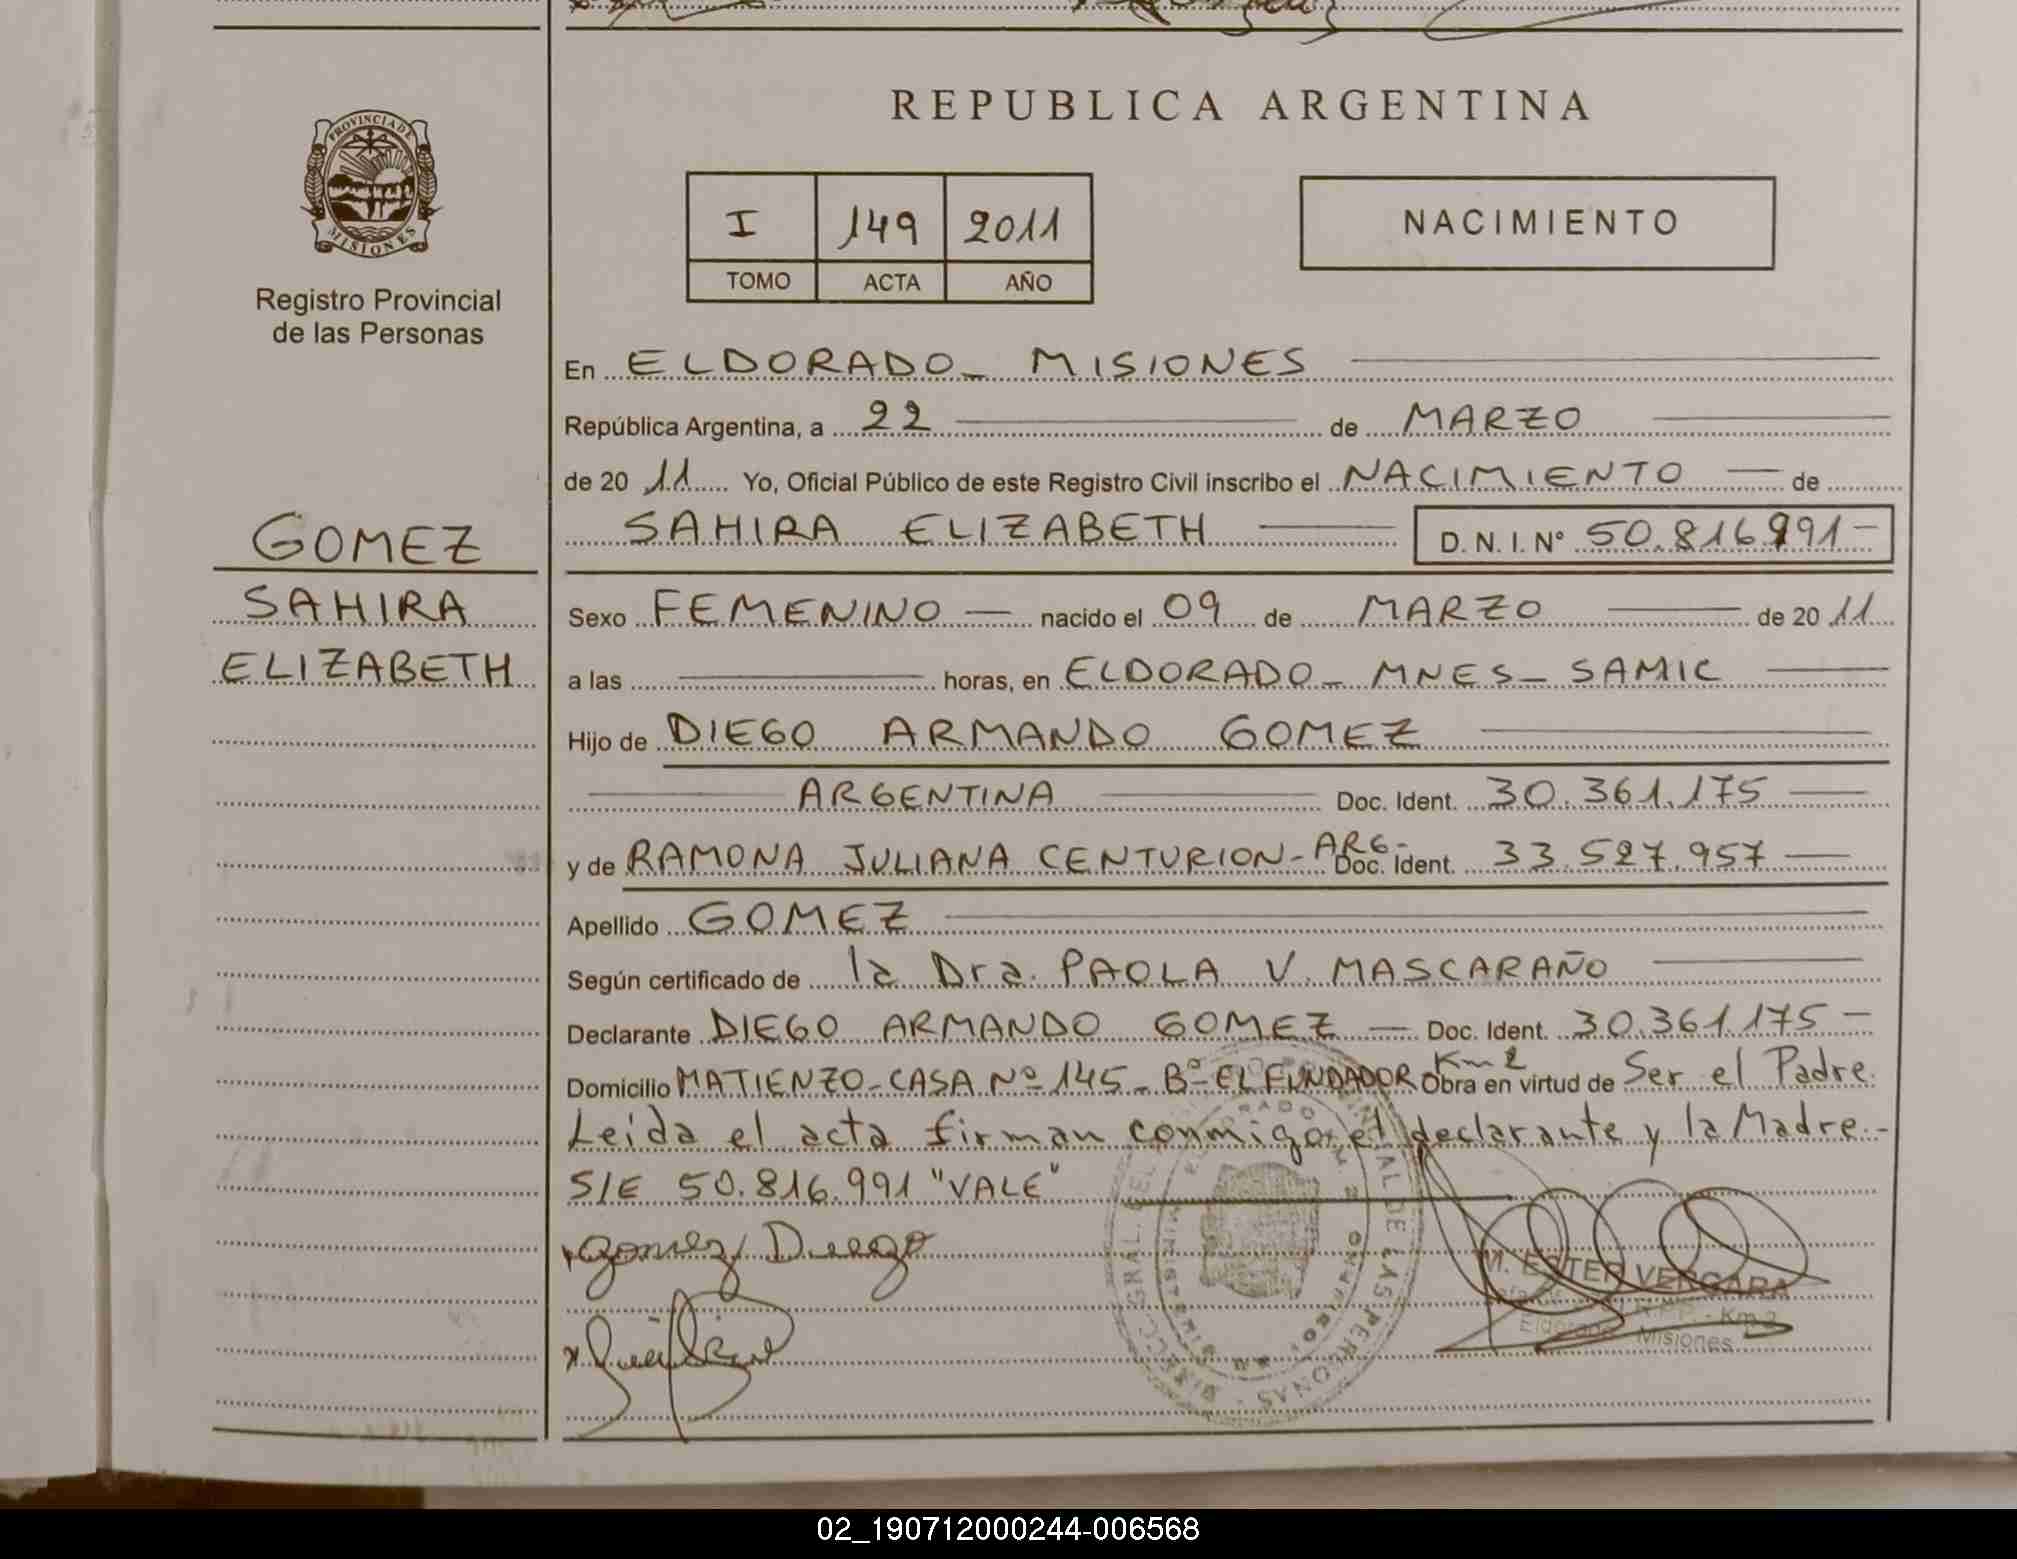 REPUBLICA ARGENTINA
PROVINCIA DE MISIONES
Registro Provincial
de las Personas
I 149 2011
TOMO ACTA AÑO
NACIMIENTO
En ELDORADO_ MISIONES
República Argentina, a 22 de MARZO
de 20 11 Yo, Oficial Público de este Registro Civil inscribo el NACIMIENTO de
SAHIRA ELIZABETH D. N. I. N° 50.816991-
GOMEZ
SAHIRA
ELIZABETH
Sexo FEMENINO nacido el 09 de MARZO de 20 11
a las horas, en ELDORADO_ MNES_ SAMIC
Hijo de DIEGO ARMANDO GOMEZ
ARGENTINA Doc. Ident. 30.361.175
y de RAMONA JULIANA CENTURION-ARG- Doc. Ident. 33.527.957
Apellido GOMEZ
Según certificado de la Dra. PAOLA V. MASCARAÑO
Declarante DIEGO ARMANDO GOMEZ Doc. Ident. 30.361.175-
Domicilio MATIENZO-CASA Nº 145_ Bº EL FUNDADOR-Km 2 Obra en virtud de Ser el Padre.
Leida el acta firman conmigo el declarante y la Madre.-
S/E 50.816.991 "VALE"
Gomez Diego
M. ESTER VERGARA
Km 2
Eldorado - Misiones
02_190712000244-006568